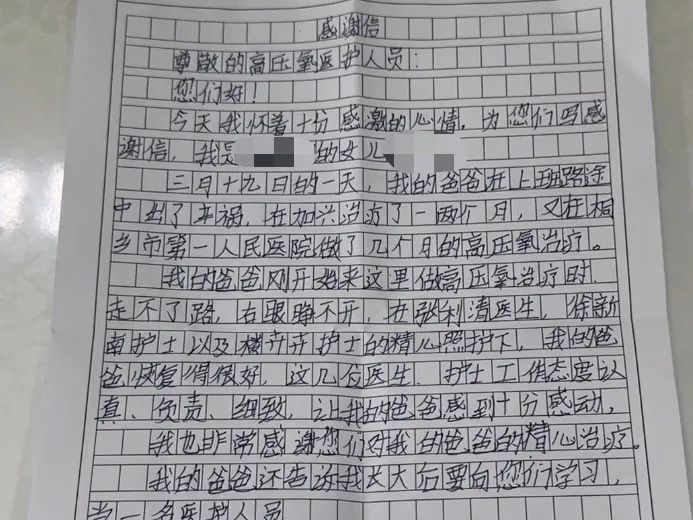 感谢信
尊敬的高压氧医护人员：
您们好！
今天我怀着十分感激的心情，为您们写感
谢信，我是 的女儿
三月十九日的一天，我的爸爸在上班路途
中出了车祸，在加兴治疗了一两个月，又在桐
乡市第一人民医院做了几个月的高压氧治疗。
我的爸爸刚开始来这里做高压氧治疗时
走不了路，右眼睁不开，在张利清医生，徐新
南护士以及横卉卉护士的精心照护下，我的爸
爸恢复得很好，这几位医生．护士工作态度认
真、负责、细致，让我的爸爸感到十分感动，
我也非常感谢您们对我的爸爸的精心治疗。
我的爸爸还告诉我长大后要向您们学习，
当一名医护人员